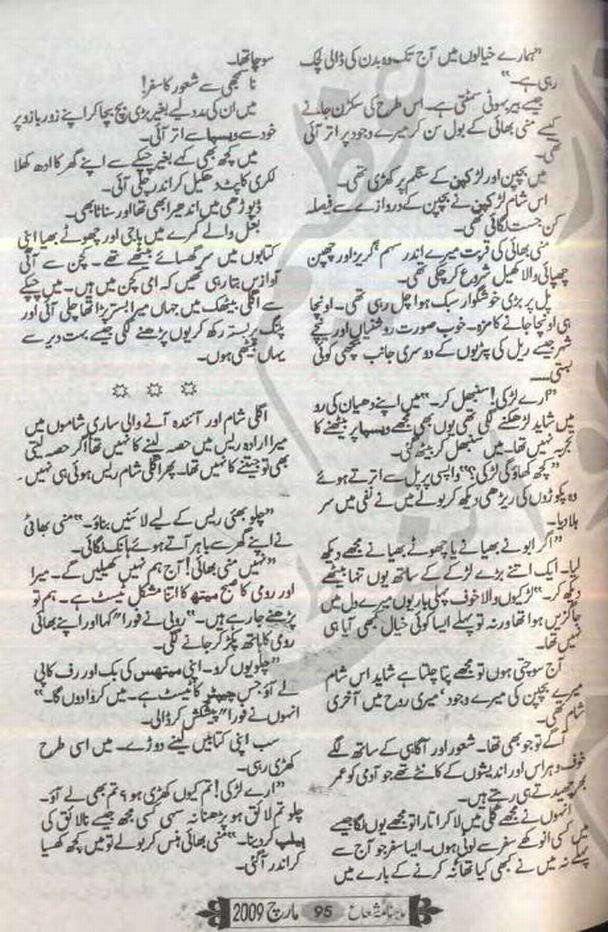 ”ہمارے خیالوں میں آج تک وہ بدن کی ڈالی لچک
رہی ہے۔“
جیسے بیر بہوٹی سمٹتی ہے۔ اس طرح کی سکڑن جانے
کیسے منی بھائی کے بول سن کر میرے وجود پر اتر آئی
تھی۔
میں بچپن اور لڑکپن کے سنگم پر کھڑی تھی۔
اس شام لڑکپن نے بچپن کے دروازے سے فیصلہ
کن جست لگائی تھی۔
منی بھائی کی قربت میرے اندر سہم ’گریز اور چھپن
چھپائی والا کھیل شروع کر چکی تھی۔
پل پر بڑی خوشگوار سبک ہوا چل رہی تھی۔ اونچا
ہی اونچا جانے کا مزہ۔ خوب صورت روشنیاں اور نیچے
شہر جیسے ریل کی پٹڑیوں کے دوسری جانب بچھی کوئی
بستی۔۔۔۔
”ارے لڑکی! سنبھل کر۔“ میں اپنے دھیان کی رو
میں شاید لڑھکنے لگی تھی یوں بھی مجھے ویسپا پر بیٹھنے کا
تجربہ نہیں تھا۔ میں سنبھل کر بیٹھ گئی۔
”کچھ کھاؤ گی لڑکی؟“ واپسی پر پل سے اترتے ہوئے
وہ پکوڑوں کی ریڑھی دیکھ کر بولے میں نے نفی میں سر
ہلا دیا۔
”اگر ابو نے بھیا نے یا چھوٹے بھیا نے مجھے دیکھ
لیا۔ ایک اتنے بڑے لڑکے کے ساتھ یوں تنہا بیٹھے
دیکھ کر۔“ لڑکیوں والا خوف پہلی بار یوں میرے دل میں
جاگزیں ہوا تھا ورنہ تو پہلے ایسا کوئی خیال کبھی آیا ہی
نہیں تھا۔
آج سوچتی ہوں تو مجھے پتا چلتا ہے شاید اس شام
میرے بچپن کی میرے وجود ’میری روح میں آخری
شام تھی۔
آگے تو جو بھی تھا۔ شعور اور آگاہی کے ساتھ لگے
خوف و ہراس اور اندیشوں کے کانٹے تھے جو آدمی کو عمر
بھر چھیدتے ہی رہتے ہیں۔
انہوں نے مجھے گلی میں لا کر اتارا تو مجھے یوں لگا جیسے
میں کسی انوکھے سفر سے لوٹی ہوں۔ ایسا سفر جو آج سے
پہلے نہ میں نے کبھی کیا تھا نہ کرنے کے بارے میں
سوچا تھا۔
نا سمجھی سے شعور کا سفر!
میں ان کی مدد لیے بغیر بڑی بچ بچا کر اپنے زور بازو پر
خود سے ویسپا سے اتر آئی۔
میں کچھ بھی کہے بغیر چپکے سے اپنے گھر کا ادھ کھلا
لکڑی کا پٹ دھکیل کر اندر چلی آئی۔
ڈیوڑھی میں اندھیرا بھی تھا اور سناٹا بھی۔
بغل والے کمرے میں باجی اور چھوٹے بھیا اپنی
کتابوں میں سر گھسائے بیٹھے تھے۔ کچن سے آتی
آوازیں بتا رہی تھیں کہ امی کچن میں ہیں۔ میں چپکے
سے اگلی بیٹھک میں جہاں میرا بستر پڑا تھا چلی آئی اور
پلنگ پر بستہ رکھ کر یوں پڑھنے لگی جیسے بہت دیر سے
یہاں بیٹھی ہوں۔
☼ ☼ ☼
اگلی شام اور آئندہ آنے والی ساری شاموں میں
میرا ارادہ ریس میں حصہ لینے کا نہیں تھا اگر حصہ لیتی
بھی تو جیتنے کا نہیں تھا۔ پھر اگلی شام ریس ہوئی ہی نہیں۔
”چلو بھئی ریس کے لیے لائنیں بناؤ۔“ منی بھائی
نے اپنے گھر سے باہر آتے ہوئے ہانک لگائی۔
”نہیں منی بھائی! آج ہم نہیں کھیلیں گے۔ میرا
اور رومی کا صبح میتھ کا اتنا مشکل ٹیسٹ ہے۔ ہم تو
پڑھنے جا رہے ہیں۔“ روبی نے فوراً کہا اور اپنے بھائی
رومی کا ہاتھ پکڑ کر جانے لگی۔
”چلو یوں کرو۔ اپنی میتھس کی بک اور رف کاپی
لے آؤ جس چیپٹر کا ٹیسٹ ہے۔ میں کروا دوں گا۔“
انہوں نے فوراً پیشکش کر ڈالی۔
سب اپنی کتابیں لینے دوڑے۔ میں اسی طرح
کھڑی رہی۔
”ارے لڑکی! تم کیوں کھڑی ہو؟ تم بھی لے آؤ۔
چلو تم لائق ہو پڑھنا نہ سہی کسی مجھ جیسے نالائق کی
ہیلپ کر دینا۔“ منی بھائی ہنس کر بولے تو میں کچھ کھسیا
کر اندر آ گئی۔
ماہنامہ شعاع 95 مارچ 2009